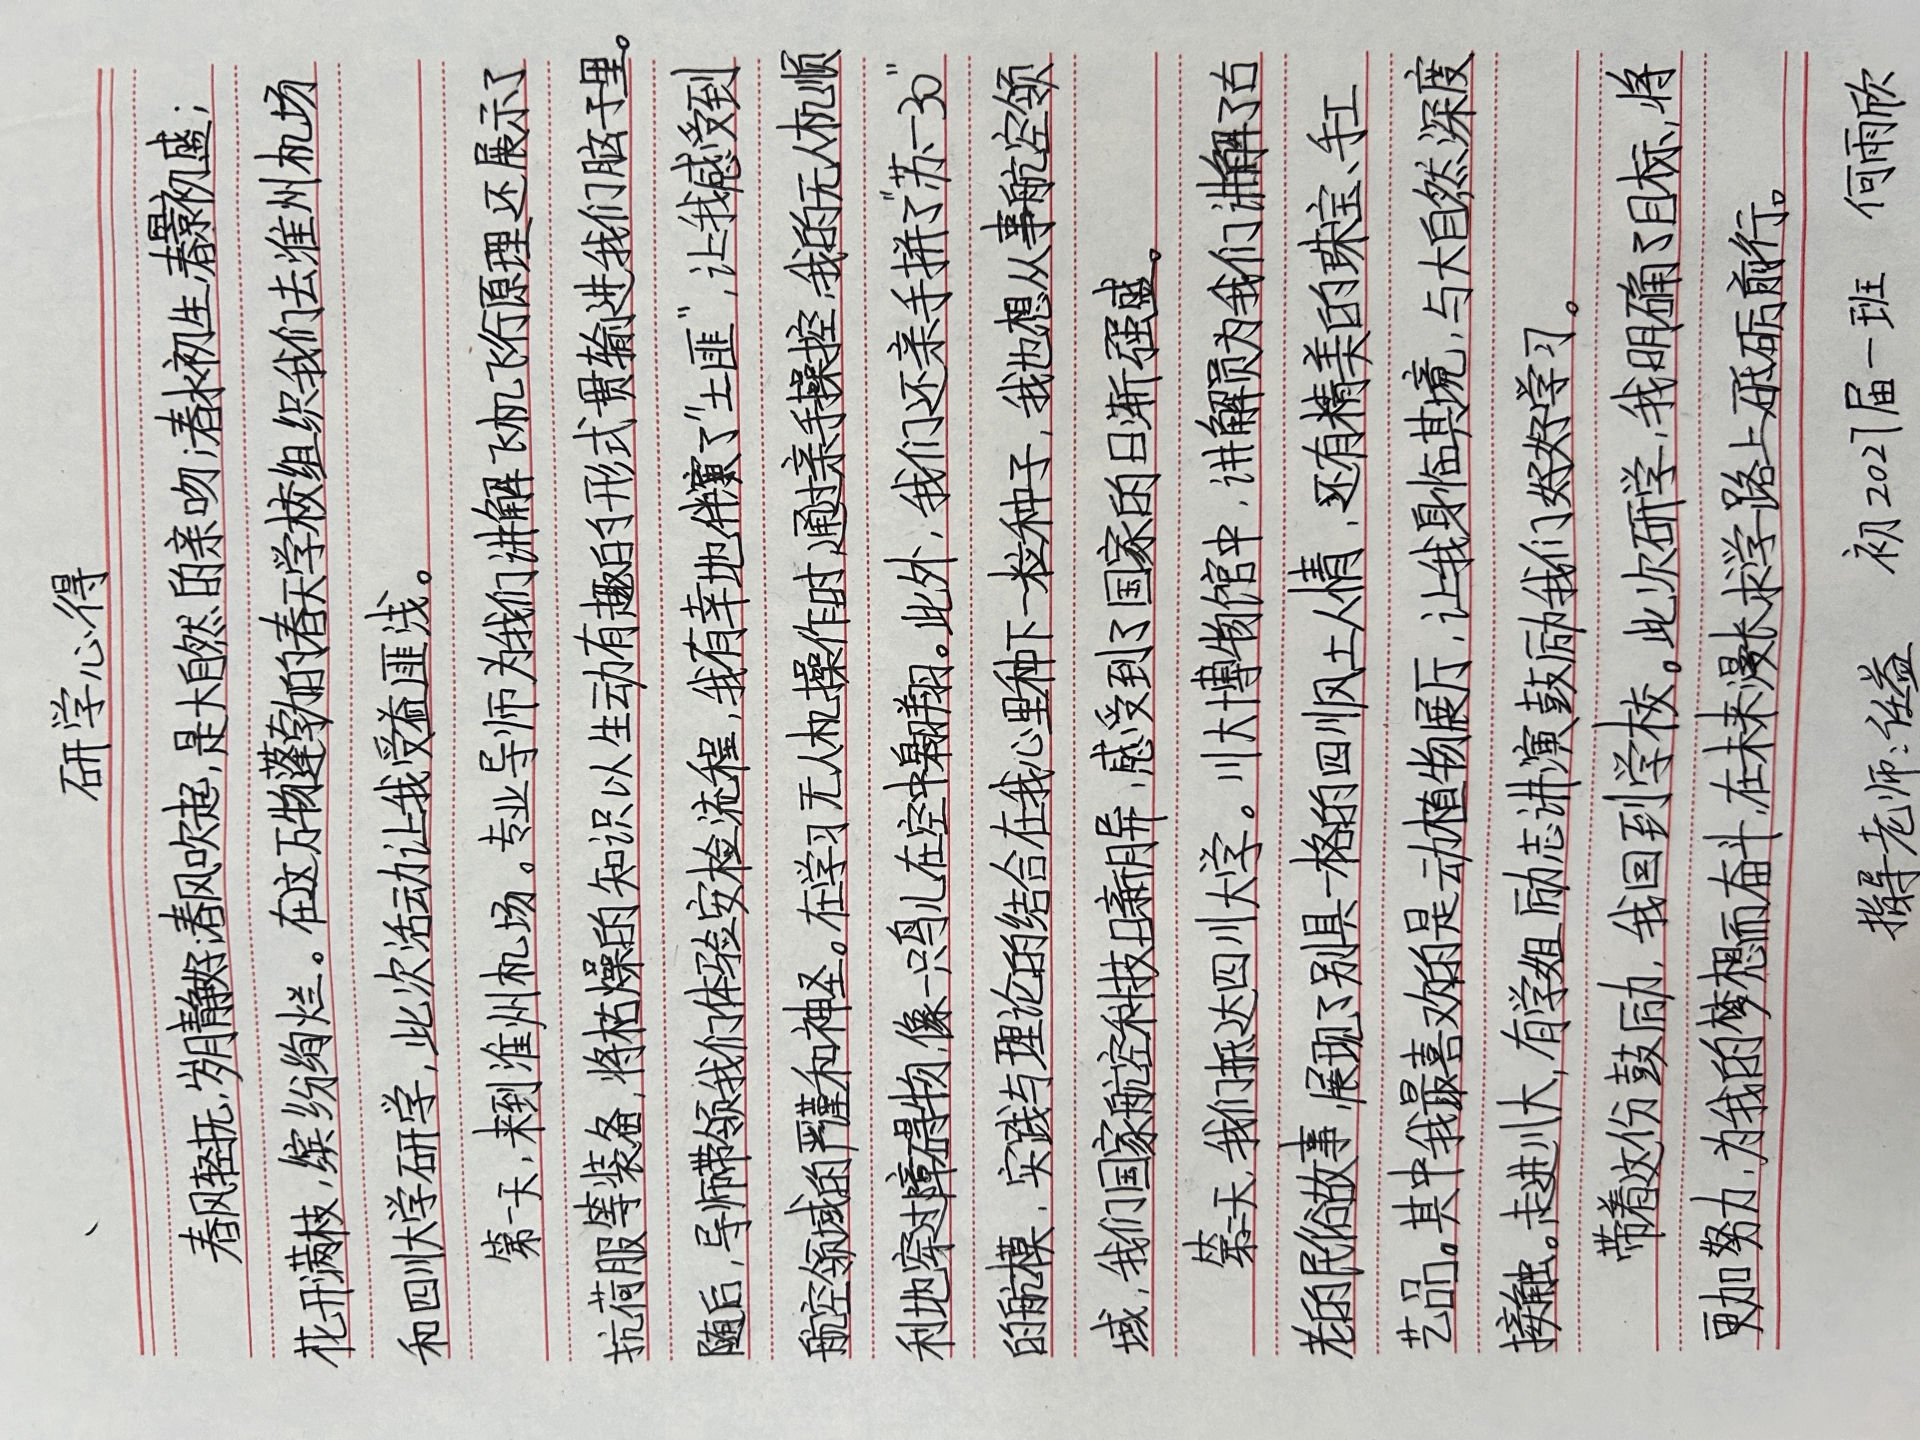 研学心得
春风轻抚,岁月静好;春风吹起,是大自然的亲吻;春水初生,春景初盛;
花开满枝,缤纷绚烂。在这万物蓬勃的春天学校组织我们去淮州机场
和四川大学研学,此次活动让我受益匪浅。
第一天,来到淮州机场。专业导师为我们讲解飞机飞行原理还展示了
抗荷服等装备,将枯燥的知识以生动有趣的形式贯输进我们脑子里。
随后,导师带领我们体验安检流程,我有幸地伴演了"土匪",让我感受到
航空领域的严谨和神圣。在学习无人机操作时,通过亲手操控,我的无人机顺
利地穿过障碍物,像一只鸟儿在空中翱翔。此外,我们还亲手拼了"苏-30"
的航模,实践与理论的结合在我心里种下一粒种子,我也想从事航空领
域,我们国家航空科技日新月异,感受到了国家的日渐强盛。
第二天,我们抵达四川大学。川大博物馆中,讲解员为我们讲解了古
老的民俗故事,展现了别具一格的四川风土人情,还有精美的珠宝、手工
艺品。其中我最喜欢的是动植物展厅,让我身临其境,与大自然深度
接触。走进川大,有学姐励志讲演鼓励我们好好学习。
带着这份鼓励,我回到学校。此次研学,我明确了目标,将
更加努力,为我的梦想而奋斗,在未来漫长求学路上砥砺前行。
指导老师:益 初2027届一班 何雨欣